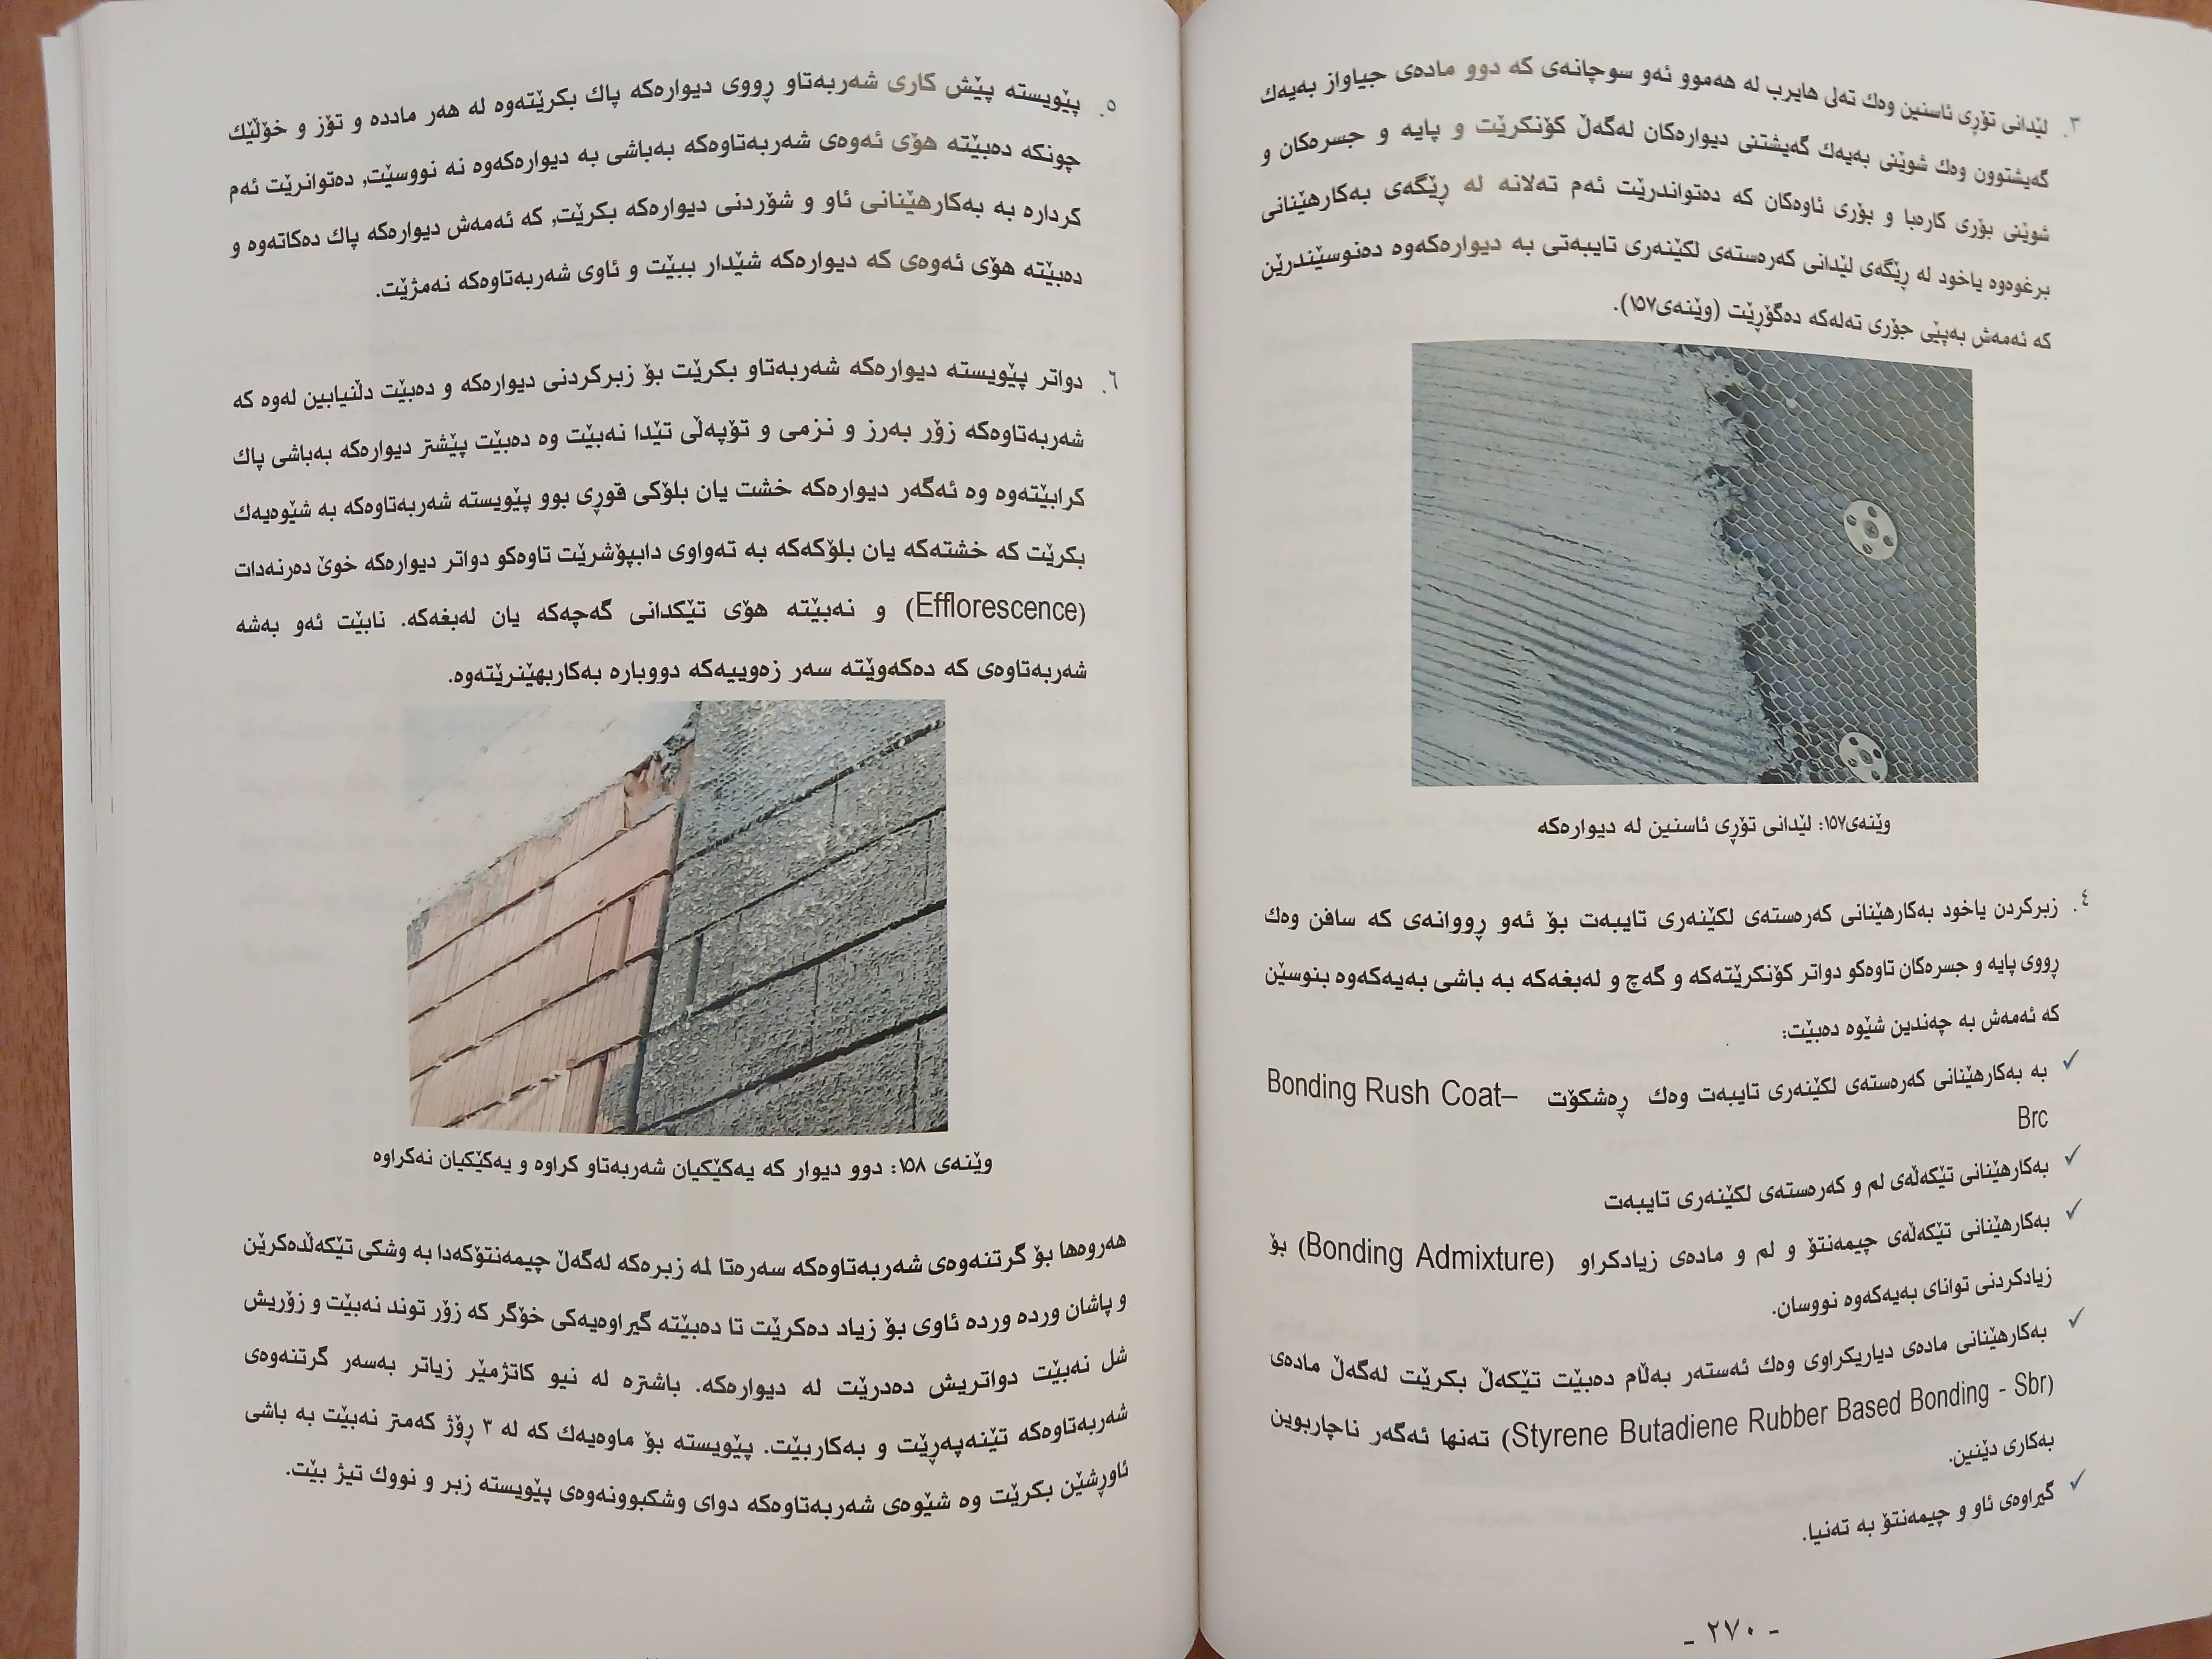 ٣. لێدانی تۆڕی ئاسنین وەك تەلی هایرب لە هەموو ئەو سوچانەی كە دوو مادەی جیاواز بەیەك
گەیشتوون وەك شوێنی بەیەك گەیشتنی دیوارەكان لەگەڵ كۆنكرێت و پایە و جسرەكان و
شوێنی بۆری كارەبا و بۆری ئاوەكان كە دەتواندرێت ئەم تەلانە لە ڕێگەی بەكارهێنانی
برغوەوە یاخود لە ڕێگەی لێدانی كەرەستەی لكێنەری تایبەتی بە دیوارەكەوە دەنوسێندرێن
كە ئەمەش بەپێی جۆری تەلەكە دەگۆڕێت (وێنەی١٥٧).
وێنەی١٥٧: لێدانی تۆڕی ئاسنین لە دیوارەكە
٤. زبركردن یاخود بەكارهێنانی كەرەستەی لكێنەری تایبەت بۆ ئەو ڕووانەی كە سافن وەك
ڕووی پایە و جسرەكان تاوەكو دواتر كۆنكرێتەكە و گەچ و لەبغەكە بە باشی بەیەكەوە بنوسێن
كە ئەمەش بە چەندین شێوە دەبێت:
✓ بە بەكارهێنانی كەرەستەی لكێنەری تایبەت وەك ڕەشكۆت Bonding Rush Coat–
Brc
✓ بەكارهێنانی تێكەڵەی لم و كەرەستەی لكێنەری تایبەت
✓ بەكارهێنانی تێكەڵەی چیمەنتۆ و لم و مادەی زیادكراو (Bonding Admixture) بۆ
زیادكردنی توانای بەیەكەوە نووسان.
✓ بەكارهێنانی مادەی دیاریكراوی وەك ئەستەر بەڵام دەبێت تێكەڵ بكرێت لەگەڵ مادەی
(Styrene Butadiene Rubber Based Bonding - Sbr) تەنها ئەگەر ناچاربوین
بەكاری دێنین.
✓ گیراوەی ئاو و چیمەنتۆ بە تەنیا.
- ٢٧٠ -
٥. پێویستە پێش كاری شەربەتاو ڕووی دیوارەكە پاك بكرێتەوە لە هەر ماددە و تۆز و خۆڵێك
چونكە دەبێتە هۆی ئەوەی شەربەتاوەكە بەباشی بە دیوارەكەوە نە نووسێت, دەتوانرێت ئەم
كردارە بە بەكارهێنانی ئاو و شۆردنی دیوارەكە بكرێت, كە ئەمەش دیوارەكە پاك دەكاتەوە و
دەبێتە هۆی ئەوەی كە دیوارەكە شێدار ببێت و ئاوی شەربەتاوەكە نەمژێت.
٦. دواتر پێویستە دیوارەكە شەربەتاو بكرێت بۆ زبركردنی دیوارەكە و دەبێت دڵنیابین لەوە كە
شەربەتاوەكە زۆر بەرز و نزمی و تۆپەڵی تێدا نەبێت وە دەبێت پێشتر دیوارەكە بەباشی پاك
كرابێتەوە وە ئەگەر دیوارەكە خشت یان بلۆكی قوڕی بوو پێویستە شەربەتاوەكە بە شێوەیەك
بكرێت كە خشتەكە یان بلۆكەكە بە تەواوی دابپۆشرێت تاوەكو دواتر دیوارەكە خوێ دەرنەدات
(Efflorescence) و نەبێتە هۆی تێكدانی گەچەكە یان لەبغەكە. نابێت ئەو بەشە
شەربەتاوەی كە دەكەوێتە سەر زەوییەكە دووبارە بەكاربهێنرێتەوە.
وێنەی ١٥٨: دوو دیوار كە یەكێكیان شەربەتاو كراوە و یەكێكیان نەكراوە
هەروەها بۆ گرتنەوەی شەربەتاوەكە سەرەتا لمە زبرەكە لەگەڵ چیمەنتۆكەدا بە وشكی تێكەڵدەكرێن
و پاشان وردە وردە ئاوی بۆ زیاد دەكرێت تا دەبێتە گیراوەیەكی خۆگر كە زۆر توند نەبێت و زۆریش
شل نەبێت دواتریش دەدرێت لە دیوارەكە. باشترە لە نیو كاتژمێر زیاتر بەسەر گرتنەوەی
شەربەتاوەكە تێنەپەڕێت و بەكاربێت. پێویستە بۆ ماوەیەك كە لە ٣ ڕۆژ كەمتر نەبێت بە باشی
ئاوڕشێن بكرێت وە شێوەی شەربەتاوەكە دوای وشكبوونەوەی پێویستە زبر و نووك تیژ بێت.